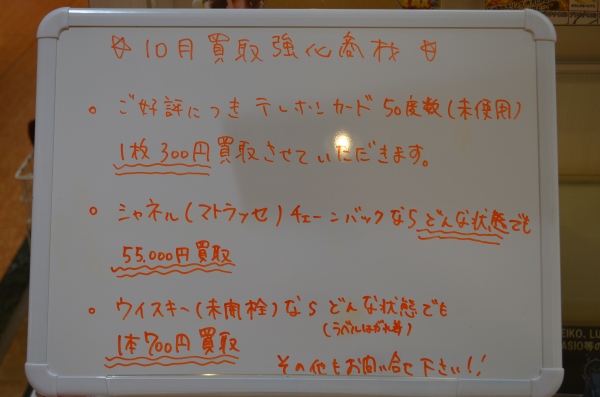 ☆10月買取強化商材☆
○ ご好評につき テレホンカード 50度数(未使用)
1枚 300円 買取させていただきます。
○ シャネル(マトラッセ)チェーンバックなら どんな状態でも
55,000円買取
○ ウイスキー(未開栓)なら どんな状態でも
(ラベルはがれ等)
1本700円買取
その他もお問い合せ下さい!!
EIKO, LU
ASIO等の